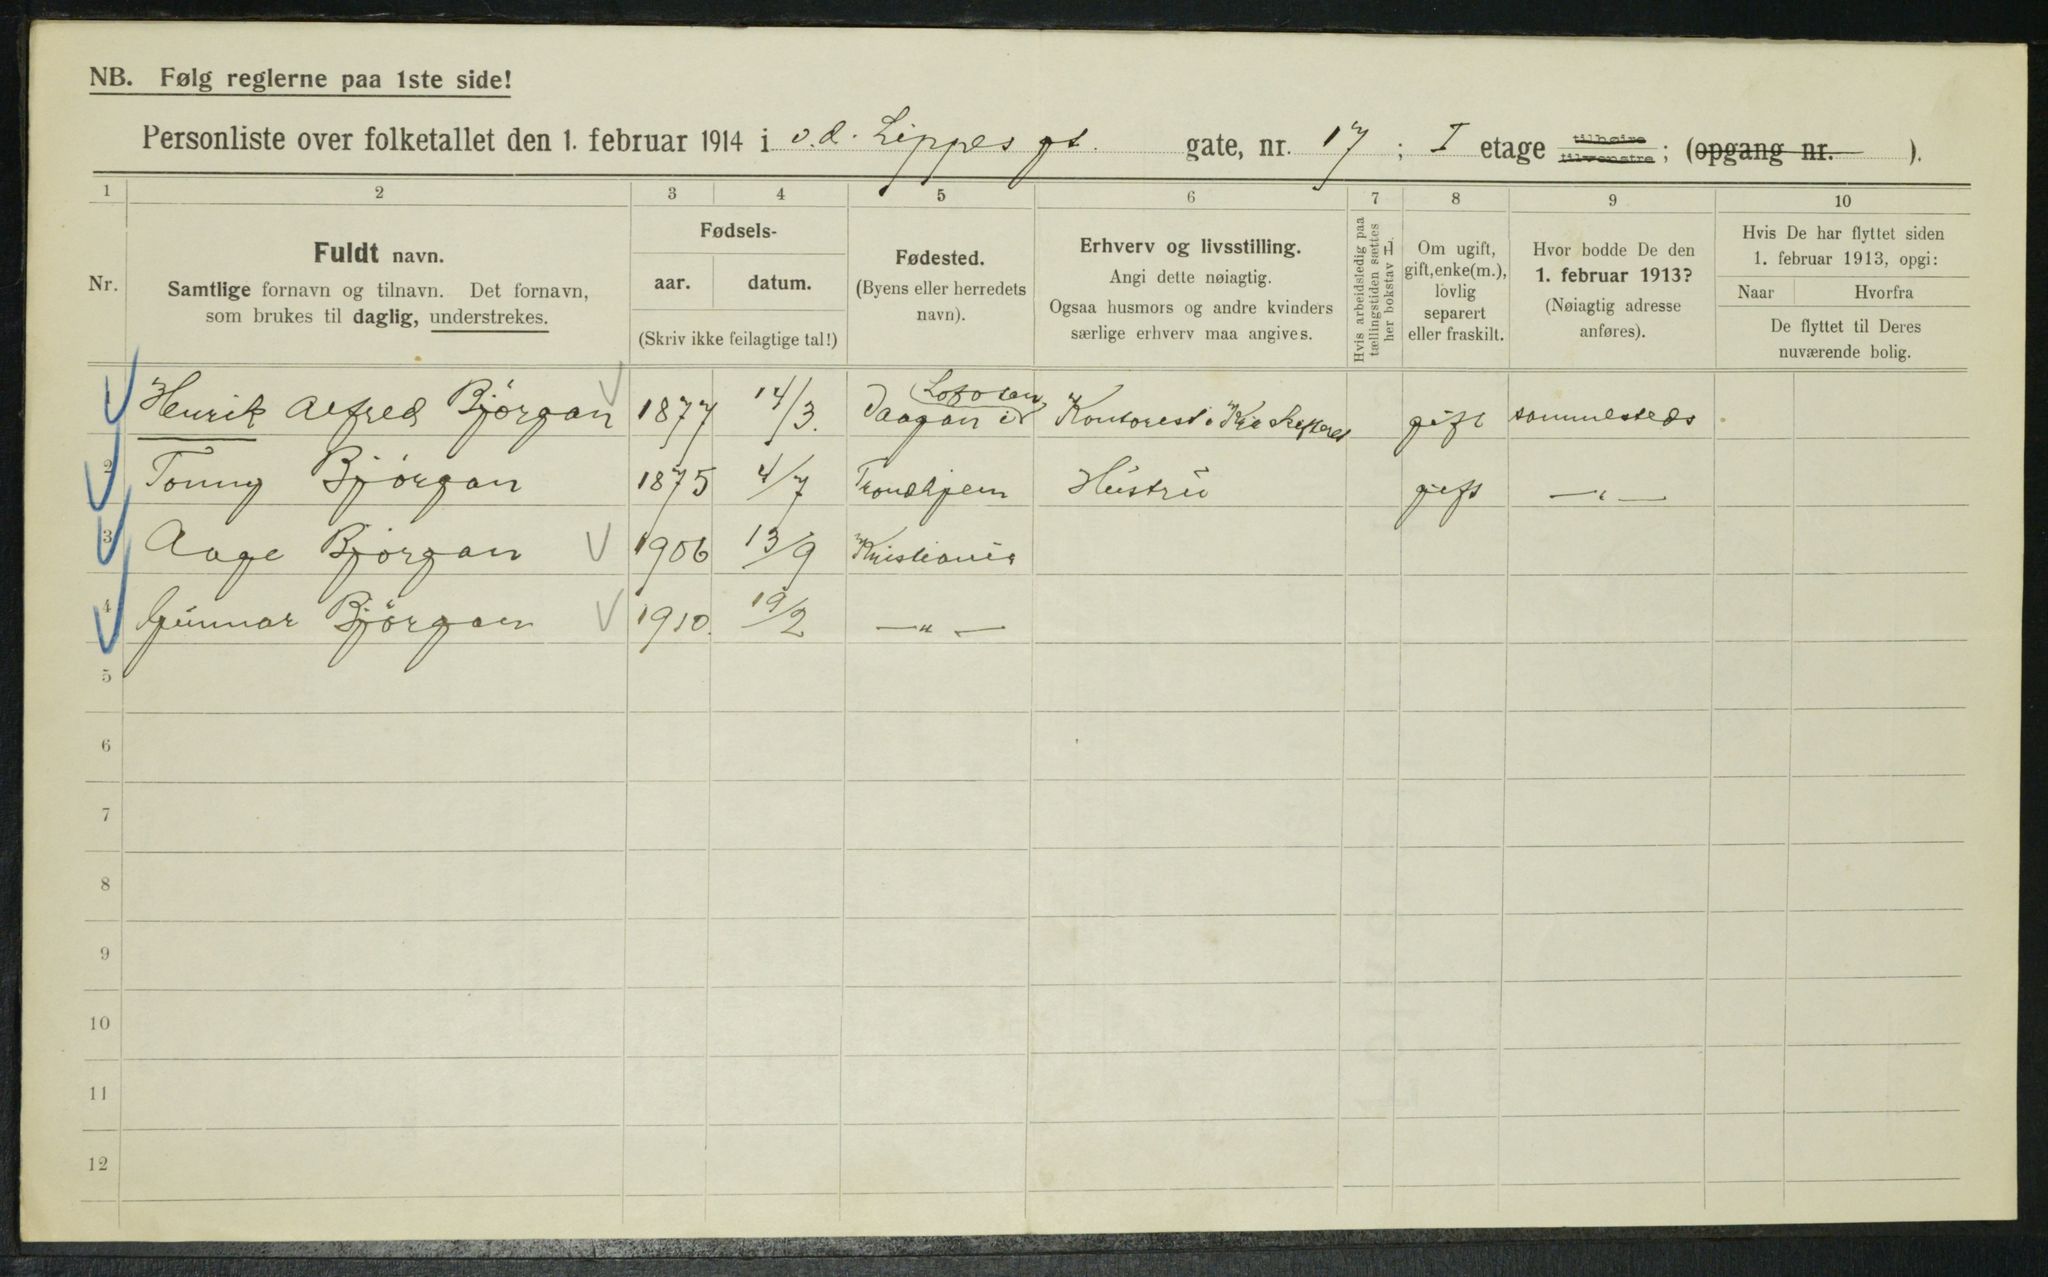 NB. Følg reglerne paa 1ste side!
Personliste over folketallet den 1. februar 1914 i v.d. Lippes gt. gate, nr. 17 ; I etage tilhøire tilvenstre ; (opgang nr. ).
1 2 3 4 5 6 7 8 9 10
Nr.
Fuldt navn.
Samtlige fornavn og tilnavn. Det fornavn,
som brukes til daglig, understrekes.
Fødsels-
aar. datum.
(Skriv ikke feilagtige tal!)
Fødested.
(Byens eller herredets
navn).
Erhverv og livsstilling.
Angi dette nøiagtig.
Ogsaa husmors og andre kvinders
særlige erhverv maa angives.
Hvis arbeidsledig paa
tællingstiden sættes
her bokstav L.
Om ugift,
gift, enke(m.),
lovlig
separert
eller fraskilt.
Hvor bodde De den
1. februar 1913?
(Nøiagtig adresse
anføres).
Hvis De har flyttet siden
1. februar 1913, opgi:
Naar Hvorfra
De flyttet til Deres
nuværende bolig.
1 Henrik Alfred Bjørgan 1877 14/3. Vaagan i Lofoten Kontorist i gift sammesteds
2 Tonny Bjørgan 1875 4/7 Trondhjem Hustru gift —"—
3 Aage Bjørgan 1906 13/9 Kristiania
4 Gunnar Bjørgan 1910. 19/2 —"—
5
6
7
8
9
10
11
12